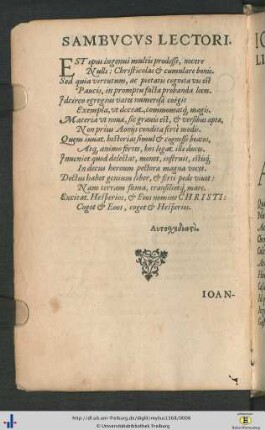 SAMBVCVS LECTORI.
EST opus ingenui multis prodesse, nocere
Nulli; Christicolas & cumulare bonis.
Sed quia virtutum, ac pietatis cognita vis est
Paucis, in promptu facta probanda loco.
Idcirco egregius vates numerosa coëgit
Exempla, vt doceat, commoneatq́, magis.
Materia vt noua, sic grauis est, & versibus apta,
Non prius Aonijs condita ferè modis.
Quem iuuat, historias simul & cognosse breueis,
Atq, animo fortes, hos legat: ille docet.
Inueniet quod delectat, monet, instruit, istiq́
In decus heroum pectora magna vocet.
Dectus habet genium liber, & ferri pede viuet:
Nam terram fama, transilietq́, mare.
Excitat Hesperios, & Eoos nomine CHRISTI:
Coget & Eous, coget & Hesperios.
IOAN-
http://dl.ub.uni-freiburg.de/diglit/mylius1568/0006
© Universitätsbibliothek Freiburg